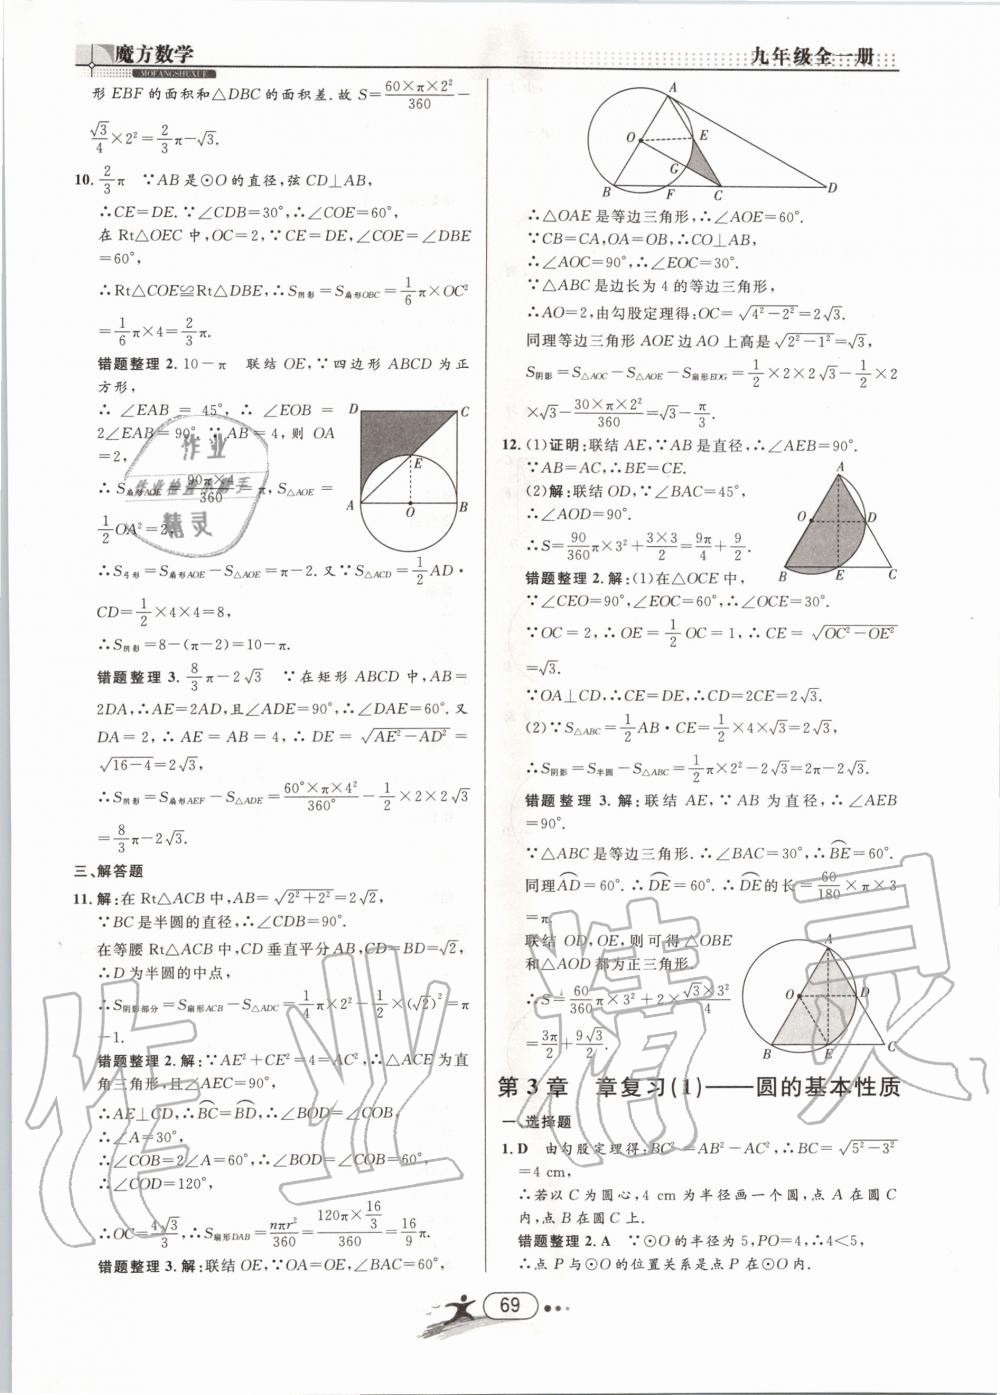 魔方数学
MOFANGSHUXUE
九年级全一册
形 EBF 的面积和△DBC 的面积差.故 S=60×π×2²/360−
√3/4×2²=2/3π−√3.
10. 2/3π ∵AB 是⊙O 的直径,弦 CD⊥AB,
∴CE=DE.∵∠CDB=30°,∴∠COE=60°,
在 Rt△OEC 中,OC=2,∵CE=DE,∠COE=∠DBE
=60°,
∴Rt△COE≌Rt△DBE,∴S阴影=S扇形OBC=1/6π×OC²
=1/6π×4=2/3π.
错题整理 2. 10−π 联结 OE,∵四边形 ABCD 为正
方形,
∴∠EAB = 45°,∴∠EOB =
2∠EAB=90°.∵AB=4,则 OA
=2,
∴S扇形AOE=90π×4/360=π,S△AOE=
1/2OA²=2,
∴S弓形=S扇形AOE−S△AOE=π−2.又∵S△ACD=1/2AD·
CD=1/2×4×4=8,
∴S阴影=8−(π−2)=10−π.
D
C
E
A
O
B
错题整理 3. 8/3π−2√3 ∵在矩形 ABCD 中,AB=
2DA,∴AE=2AD,且∠ADE=90°,∴∠DAE=60°.又
DA=2,∴AE=AB=4,∴DE=√(AE²−AD²)=
√(16−4)=2√3,
∴S阴影=S扇形AEF−S△ADE=60°×π×4²/360°−1/2×2×2√3
=8/3π−2√3.
三、解答题
11. 解:在 Rt△ACB 中,AB=√(2²+2²)=2√2,
∵BC 是半圆的直径,∴∠CDB=90°.
在等腰 Rt△ACB 中,CD 垂直平分 AB,CD=BD=√2,
∴D 为半圆的中点,
∴S阴影部分=S扇形ACB−S△ADC=1/4π×2²−1/2×(√2)²=π
−1.
错题整理 2. 解:∵AE²+CE²=4=AC²,∴△ACE 为直
角三角形,且∠AEC=90°,
∴AE⊥CD,∴BC⌒=BD⌒,∴∠BOD=∠COB=60°,
∴∠A=30°,
∴∠COB=2∠A=60°,∴∠BOD=∠COB=60°,
∴∠COD=120°,
∴OC=4√3/3,∴S扇形DAB=nπr²/360=120π×16/3/360=16/9π.
错题整理 3. 解:联结 OE,∵OA=OE,∠OAE=60°,
A
O
E
G
B
F
C
D
∴△OAE 是等边三角形,∴∠AOE=60°.
∵CB=CA,OA=OB,∴CO⊥AB,
∴∠AOC=90°,∴∠EOC=30°.
∵△ABC 是边长为 4 的等边三角形,
∴AO=2,由勾股定理得:OC=√(4²−2²)=2√3.
同理等边三角形 AOE 边 AO 上高是√(2²−1²)=√3,
S阴影=S△AOC−S△AOE−S扇形EOG=1/2×2×2√3−1/2×2
×√3−30×π×2²/360=√3−π/3.
12. (1)证明:联结 AE,∵AB 是直径,∴∠AEB=90°.
∵AB=AC,∴BE=CE.
(2)解:联结 OD,∵∠BAC=45°,
∴∠AOD=90°.
∴S=90/360π×3²+3×3/2=9π/4+9/2.
A
O
D
B
E
C
错题整理 2. 解:(1)在△OCE 中,
∵∠CEO=90°,∠EOC=60°,∴∠OCE=30°.
∵OC=2,∴OE=1/2OC=1,∴CE=√(OC²−OE²)
=√3.
∵OA⊥CD,∴CE=DE,∴CD=2CE=2√3.
(2)∵S△ABC=1/2AB·CE=1/2×4×√3=2√3,
∴S阴影=S半圆−S△ABC=1/2π×2²−2√3=2π−2√3.
错题整理 3. 解:联结 AE,∵AB 为直径,∴∠AEB
=90°.
∵△ABC 是等边三角形.∴∠BAC=30°,∴BE⌒=60°.
同理AD⌒=60°.∴DE⌒=60°.∴DE⌒的长=60/180×π×3
=π.
联结 OD,OE,则可得△OBE
和△AOD 都为正三角形.
∴S=60/360π×3²+2×√3×3²/4
=3π/2+9√3/2.
A
O
D
B
E
C
第 3 章 章复习(1)——圆的基本性质
一、选择题
1. D 由勾股定理得:BC²=AB²−AC²,∴BC=√(5²−3²)
=4 cm,
∴若以 C 为圆心,4 cm 为半径画一个圆,点 A 在圆 C
内,点 B 在圆 C 上.
错题整理 2. A ∵⊙O 的半径为 5,PO=4,∴4<5,
∴点 P 与⊙O 的位置关系是点 P 在⊙O 内.
69
作业
作业检查小助手
精灵
作业精灵